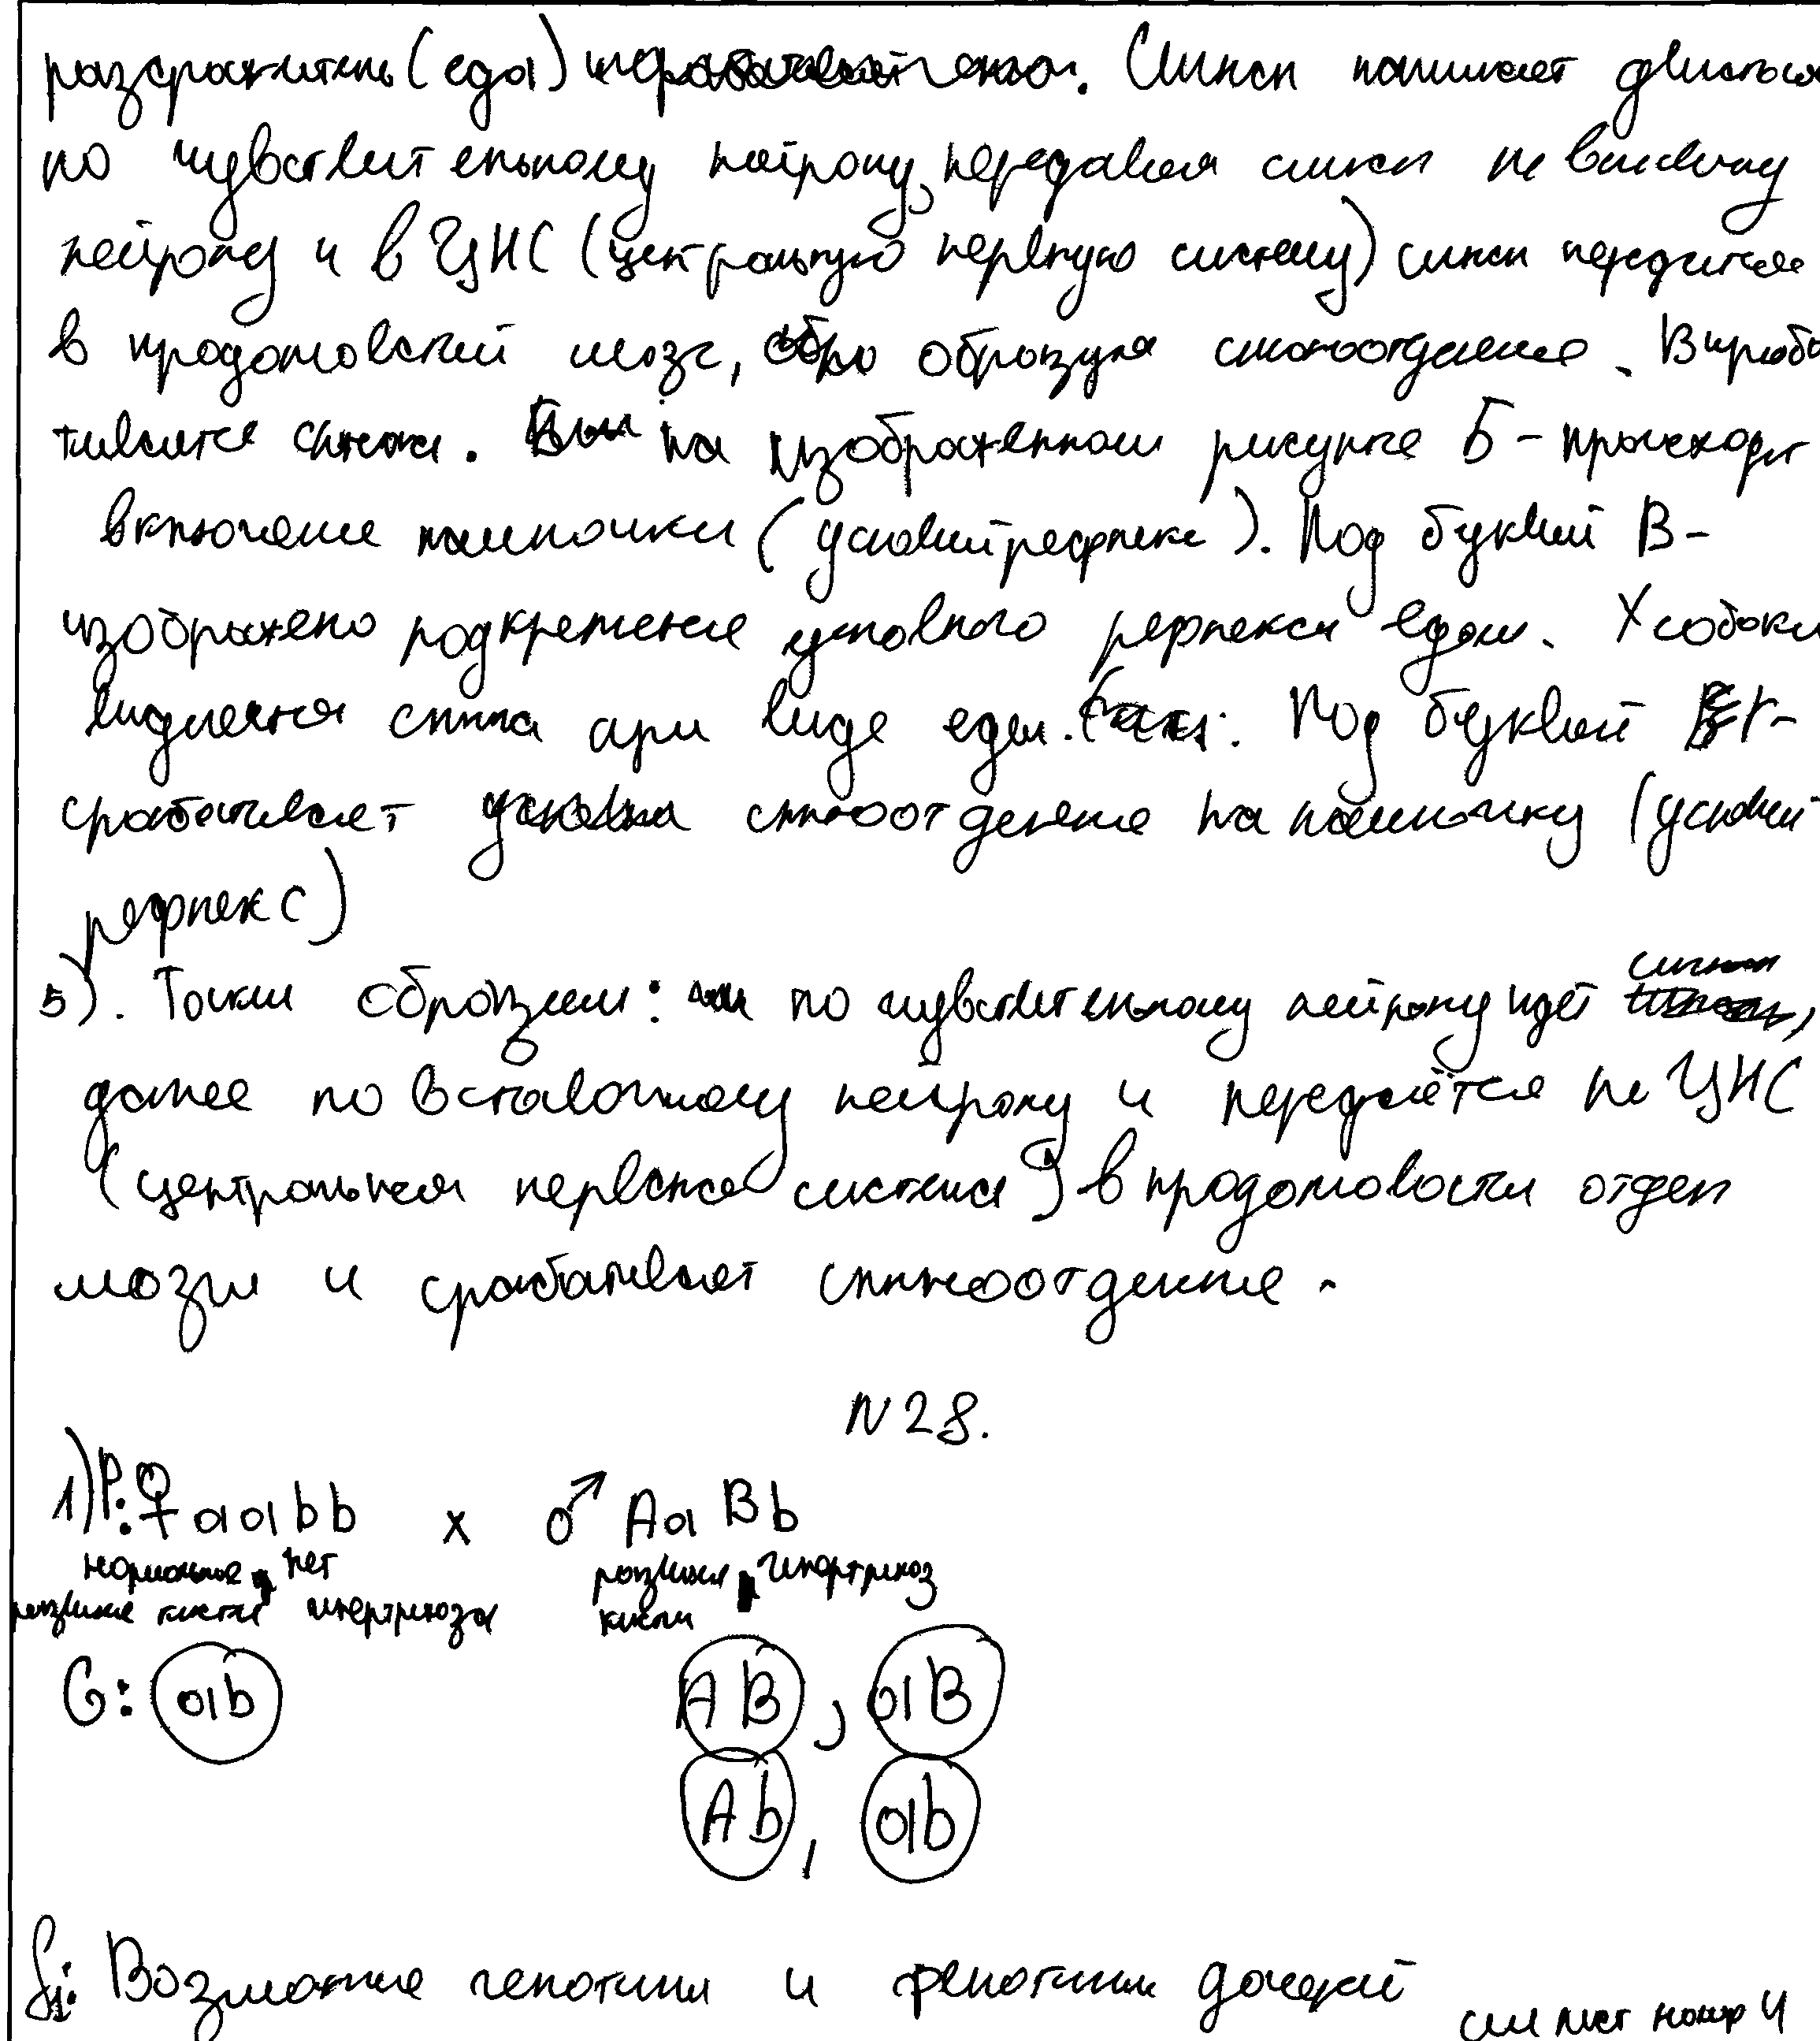 раздражитель (еда) . Сигнал начинает двигаться
по чувствительному нейрону, передавая сигнал на вставочному
нейрону и в ЦНС (центральную нервную систему) сигнал передится
в продолговатый мозг, образуя слюноотделение. Вырабо
тывается слюна. На изображенном рисунке Б - происходит
включение лампочки (условий рефлекс). Под буквой В -
изображено подкрепление условного рефлекса едой. У собаки
выделяется слюна при виде еды. Под буквой Г -
срабатывает слюноотделение на лампочку (условий
рефлекс)
5). Таким образом: по чувствительному нейрону идёт сигнал,
далее по вставочному нейрону и передаётся на ЦНС
(центральная нервная система) в продолговатый отдел
мозга и срабатывает слюноотделение.
N 28.
1) P: ♀ aabb x ♂ AaBb
нормальное, нет развитие, гипертрихоз
развитие кисти гипертрихоза кисти
G: ab AB, aB
Ab, ab
F1: Возможные генотипы и фенотипы дочерей
см лист номер 4